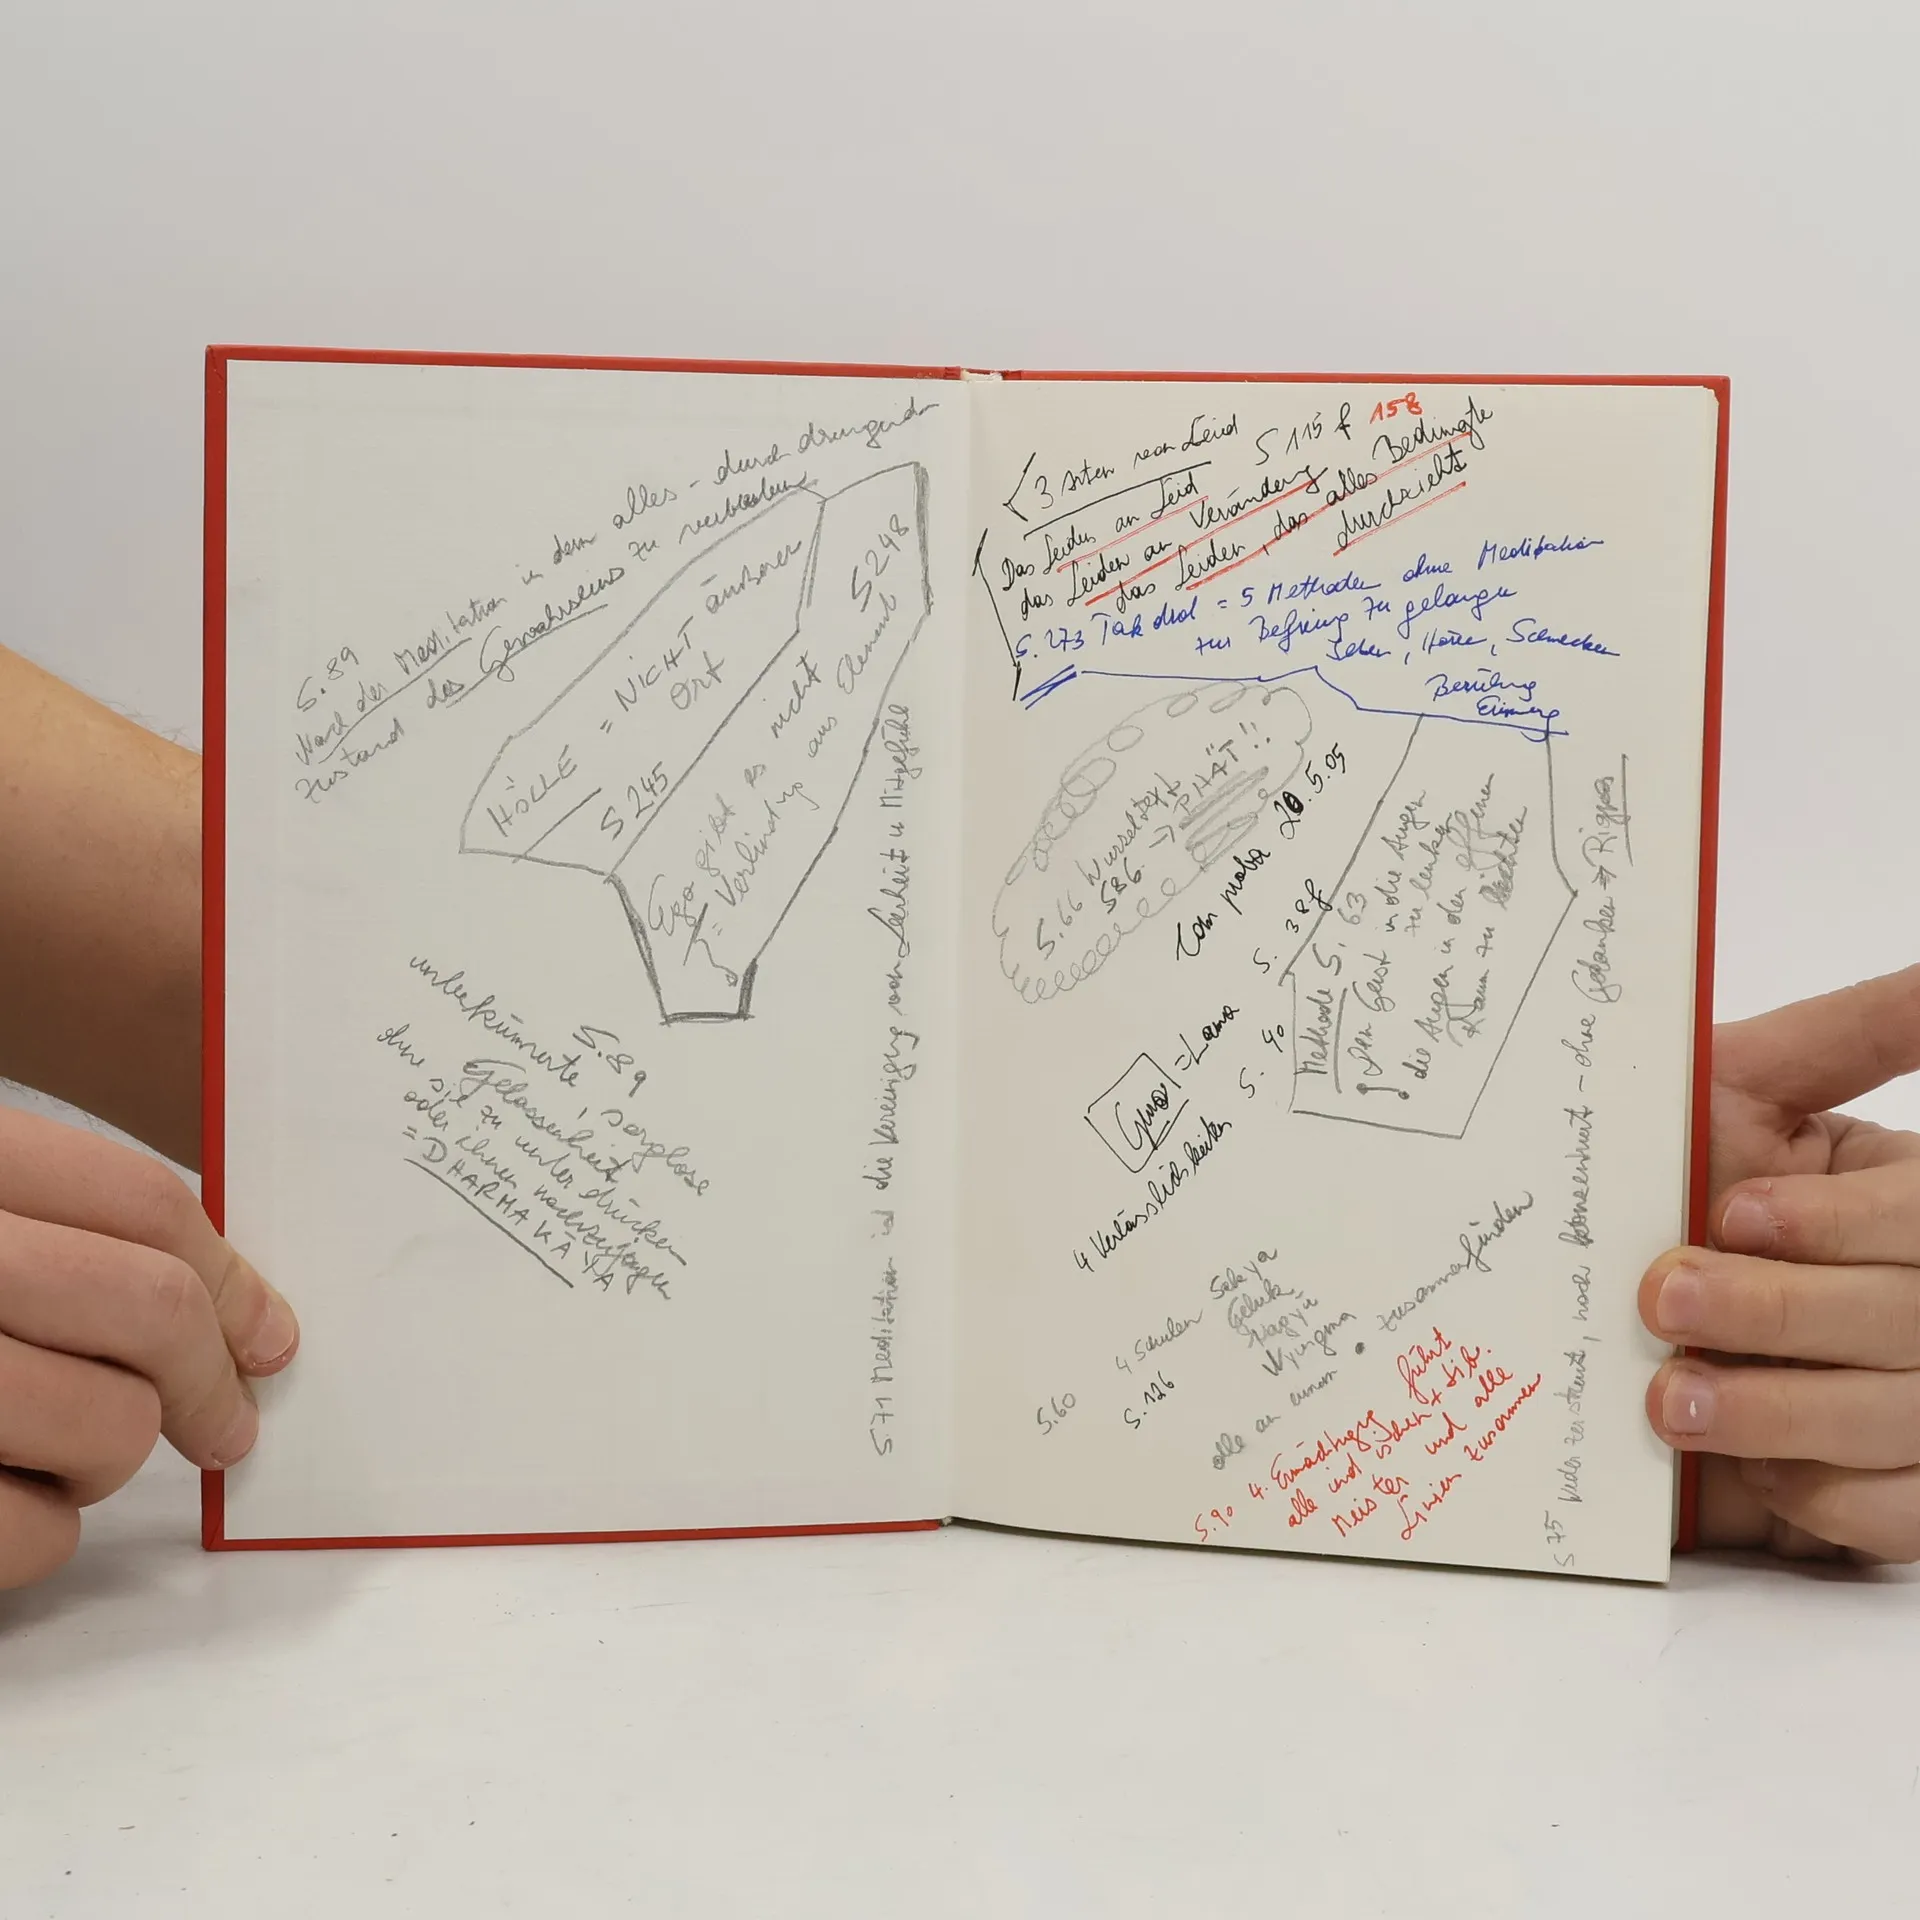 S.89
Nach der Meditation in dem alles-durchdringenden
Zustand des Gewahrseins zu verbleiben
HÖLLE = NICHT äußerer
Ort
S 245
S 248
Ego gibt es nicht
= Verbindung aus Element
S.89
unbekümmerte, sorglose
Gelassenheit
ohne sie zu unterdrücken
oder ihnen nachzujagen
= DHARMAKĀYA
S.71 Meditation ist die Vereinigung von Leerheit u Mitgefühl
3 Arten von Leid S 115 f 158
Das Leiden an Leid
das Leiden an Veränderung
das Leiden, das alles Bedingte
durchzieht
S. 273 Tak drol = 5 Methoden ohne Meditation
zur Befreiung zu gelangen
Sehen, Hören, Schmecken
Berührung
Erinnerg
S.66 Wurzeltext
S86. → "PHAT"!!
20.5.05
S. 38f
Methode S. 63
den Geist in die Augen
zu lenken
die Augen in den offenen
Raum zu richten
Guru = Lama S. 90
4 Verlässlichkeiten
S.60 4 Schulen Sakya
Geluk
Kagyü
Nyingma
S.126
alle an einem • zusammenfinden
S.90 4. Ermächtigung führt
alle indischen + tib.
Meister und alle
Linien zusammen
S 75 weder zerstreut, noch konzentriert - ohne Gedanken → Rigpa